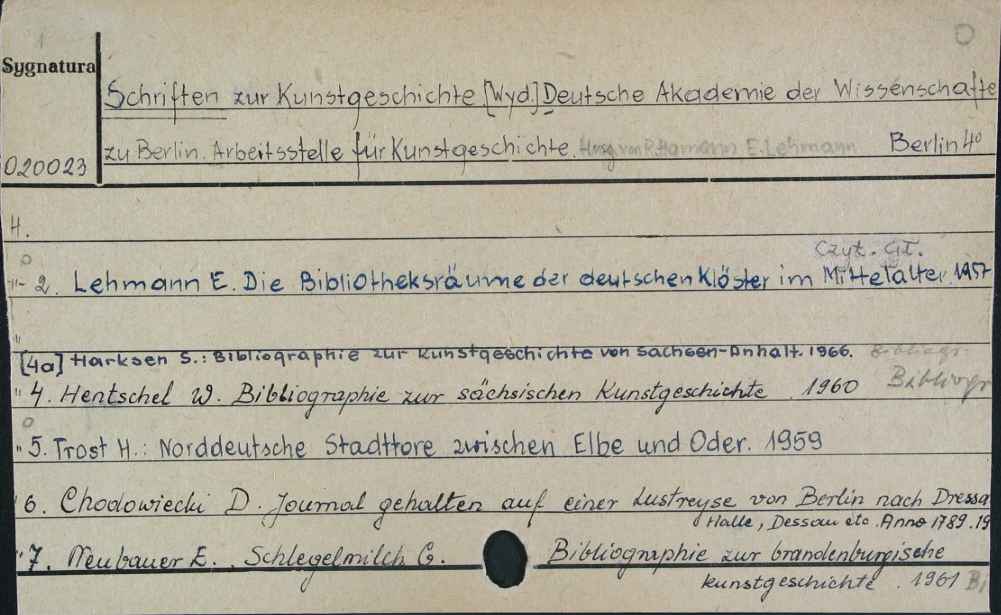 Sygnatura
Schriften zur Kunstgeschichte [Wyd.] Deutsche Akademie der Wissenschafte
zu Berlin. Arbeitsstelle für Kunstgeschichte. Hrsg. von R. Hamann E. Lehmann Berlin 4°
020023
4.
Czyt. GŁ.
"- 2. Lehmann E. Die Bibliotheksräume der deutschen Klöster im Mittelalter. 1957
"
[4a] Harksen S.: Bibliographie zur Kunstgeschichte von Sachsen-Anhalt. 1966. Bibliogr.
" 4. Hentschel W. Bibliographie zur sächsischen Kunstgeschichte . 1960 Bibliogr
" 5. Trost H.: Norddeutsche Stadttore zwischen Elbe und Oder. 1959
6. Chodowiecki D. Journal gehalten auf einer Lustreyse von Berlin nach Dressd
Halle, Dessau etc. Anno 1789. 19
" 7. Neubauer E., Schlegelmilch G. Bibliographie zur brandenburgische
kunstgeschichte . 1961 Bi